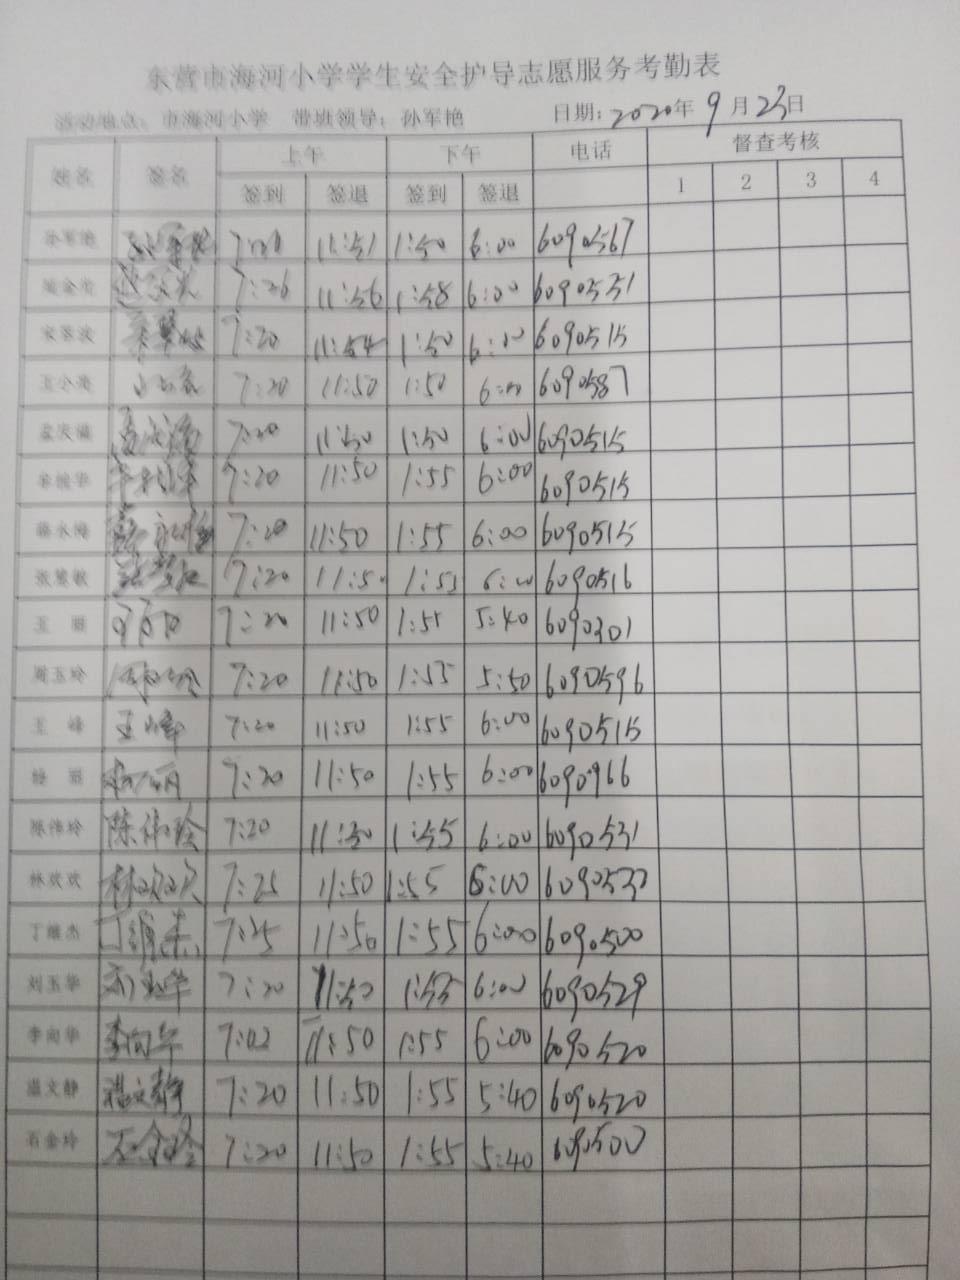 东营市海河小学学生安全护导志愿服务考勤表
活动地点：市海河小学 带班领导：孙军艳 日期：2020年9月23日
姓名 签名 上午 下午 电话 督查考核
签到 签退 签到 签退 1 2 3 4
孙军艳 11:51 1:50 6:00 6090567
7:26 11:56 1:58 6:00 6090531
7:20 11:54 1:50 6:00 6090515
王小亮 7:20 11:50 1:50 6:00 6090587
孟庆涌 7:20 11:50 1:50 6:00 6090515
7:20 11:50 1:55 6:00 6090515
7:20 11:50 1:55 6:00 6090515
张慧敏 张慧敏 7:20 11:50 1:55 6:00 6090516
王丽 7:20 11:50 1:55 5:40 6090301
周玉玲 7:20 11:50 1:55 5:50 6090596
王峰 王峰 7:20 11:50 1:55 6:00 6090515
杨丽 杨丽 7:20 11:50 1:55 6:00 6090966
陈伟玲 陈伟玲 7:20 11:50 1:55 6:00 6090531
林欢欢 林欢欢 7:25 11:50 1:55 6:00 6090533
丁维杰 丁维杰 7:25 11:50 1:55 6:00 6090500
刘玉华 刘玉华 7:20 11:50 1:55 6:00 6090529
李向华 李向华 7:02 11:50 1:55 6:00 6090520
温文静 温文静 7:20 11:50 1:55 5:40 6090520
石金玲 石金玲 7:20 11:50 1:55 5:40 6090500